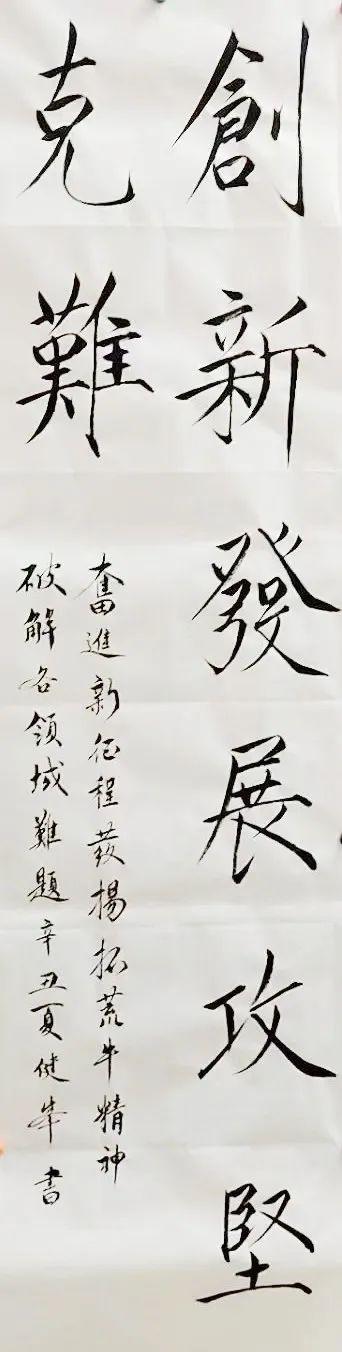 創新發展攻堅
克難
奮進新征程發揚拓荒牛精神
破解各領域難題辛丑夏健峯書